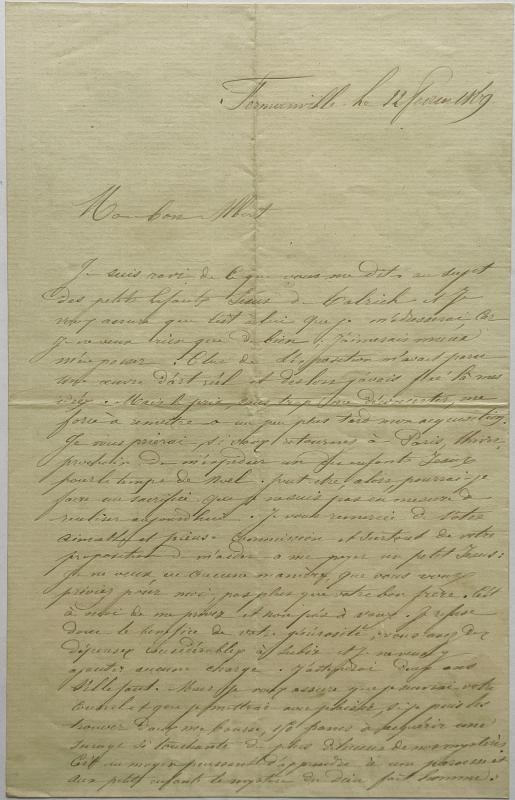 Fermanville le 12 février 1869
Mon bon Albert
Je suis ravi de ce que vous me dites au sujet
des petits Enfants Jésus de et je
vous assure que c'est à lui que je m'adresserai. Car
je ne veux rien que de bien. J'aimerais mieux
m'en passer. Celui de l'exposition m'avait paru
une œuvre d'art réel et dès lors j'avais fixé là mes
idées. Mais le prix, sans trop me déconcerter, me
force à remettre à un peu plus tard mon acquisition.
Je vous prierai, si vous retournez à Paris, l'hiver
prochain de m'expédier un des enfants Jésus
pour le temps de Noel. peut-être alors pourrai-je
faire un sacrifice que je ne suis pas en mesure de
réaliser aujourd'hui. Je vous remercie de votre
aimable et pieuse commission et surtout de votre
proposition de m'aider à me payer un petit Jésus:
je ne veux, en aucune manière, que vous vous
priviez pour moi, pas plus que votre bon frère. C'est
à moi de me priver et non pas à vous. Je refuse
donc le bénéfice de votre générosité; vous avez des
dépenses considérables à subir et je ne veux y
ajouter aucune charge. J'attendrai deux ans
s'il le faut. Mais je vous assure que je suivrai votre
conseil et que je mettrai avec plaisir si je puis les
trouver dans ma bourse, 150 francs à acquérir une
image si touchante du plus de nos mystères.
C'est un moyen puissant d'apprendre à une paroisse et
aux petits enfants le mystère du Dieu fait homme: